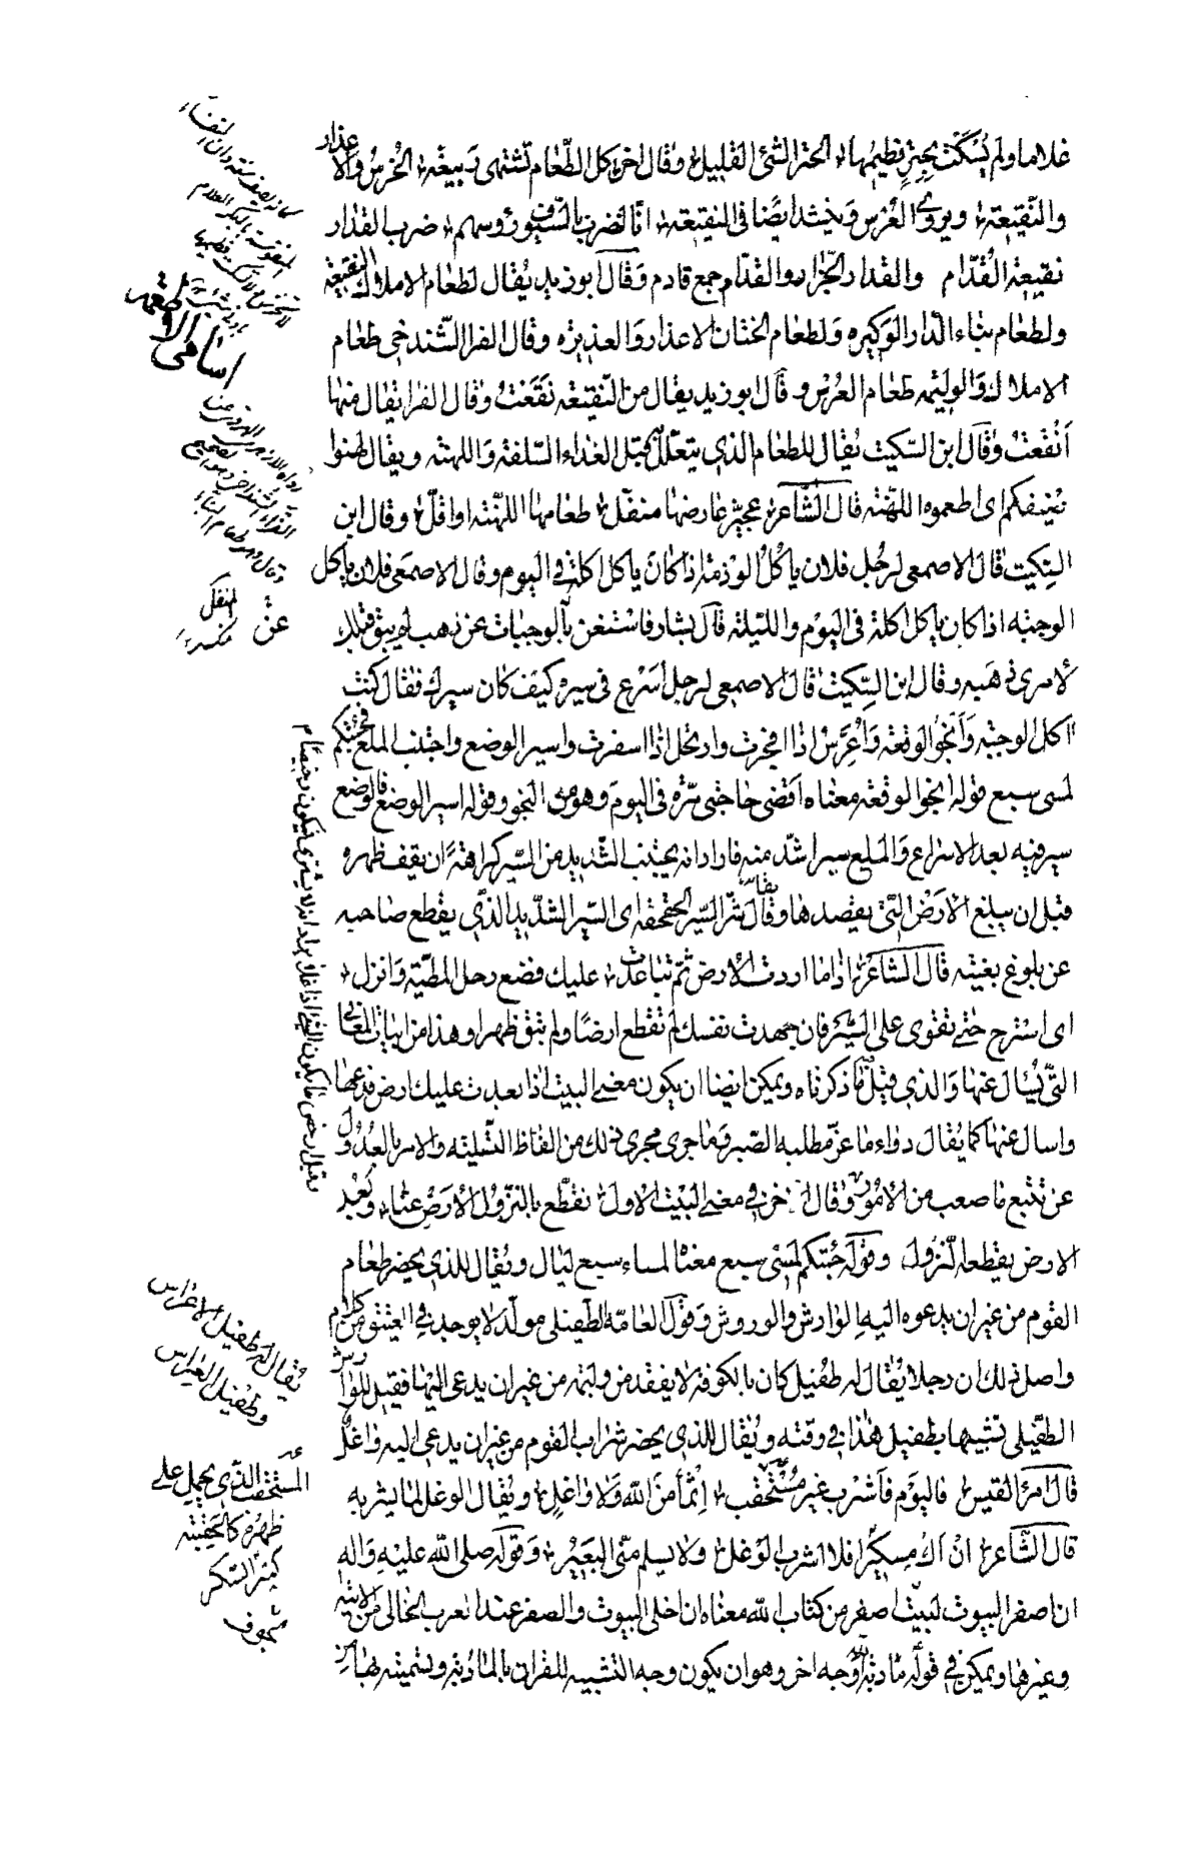 غلاما ولم يسكت بحتر فطيمها الحتر الشئ القليل وقال اخر كل الطعام تشتهى ربيعة الخرس والاعذار
والنقيعة ويروى العرس وينشد ايضا فى النقيعة انا لنضرب بالسيوف رؤوسهم ضرب القدار
نقيعة القدّام والقدار الجزار والقدّام جمع قادم وقال ابو زيد يقال لطعام الاملاك النقيعة
ولطعام بناء الدار الوكيره ولطعام الختان الاعذار والعذيرة وقال الفرا الشندخى طعام
الاملاك والوليمه طعام العرس وقال ابو زيد يقال من النقيعة نقعت وقال الفرا يقال منها
أنقعت وقال ابن السكيت يقال للطعام الذى يتعلل به قبل الغداء السلفة واللهنة ويقال لهنوا
ضيفكم اى اطعموه اللهنة قال الشاعر عجيز عارضها منفل طعامها اللهنة او اقل وقال ابن
السكيت قال الاصمعى لرجل فلان ياكل الوزمة اذا كان ياكل اكلة فى اليوم وقال الاصمعى فلان ياكل
الوجبه اذا كان ياكل اكلة فى اليوم والليلة قال بشار فاستغن بالوجبات عن ذهب لم يبق قبلك
لأمرئ ذهبه وقال ابن السكيت قال الاصمعى لرجل أسرع فى سيره كيف كان سيرك فقال كنت
آكل الوجبة وأنجو الوقعة وأعرّس اذا افجرت وارتحل اذا اسفرت واسير الوضع واجتنب الملع فجئتكم
لمسى سبع قوله انجو الوقعة معناه أقضى حاجتى مرّة فى اليوم وهو من النجو وقوله اسير الوضع فالوضع
سير فيه بعد الاسراع والملع سير اشدّ منه فاراد انه يجتنب الشديد من السير كراهة أن يقف ظهره
قبل ان يبلغ الأرض التى يقصدها وقال شر السير الحقحقة اى السير الشديد الذى يقطع صاحبه
عن بلوغ بغيته قال الشاعر اذا ما اردت الأرض ثم تباعدت عليك فضع رحل المطيّة وانزل
اى استرح حتى تقوى على السير فان جهدت نفسك لم تقطع ارضًا ولم تبق ظهرا وهذا من ابيات المعانى
التى يُسأل عنها والذى قيل ما ذكرناه ويمكن ايضا ان يكون معنى البيت اذا بعدت عليك ارض فدعها
واسال عنها كما يقال دواء ما عزّ مطلبه الصّبر وما جرى مجرى ذلك من الفاظ التسلية والامر بالعدول
عن تتبع ما صعب من الأمور وقال اخر فى معنى البيت الاول نقطّع بالنزول الأرض عنّا وبُعد
الارض يقطعه النزول وقوله جئتكم لمسى سبع معناه لمساء سبع ليال ويقال للذى يحضر طعام
القوم من غير ان يدعوه اليه الوارش والوروش وقول العامّة الطفيلى مولّد لا يوجد فى العتيق من كلام
واصل ذلك ان رجلا يقال له طفيل كان بالكوفة لا يفقد من وليمة من غير ان يدعى اليها فقيل للوارش
الطفيلى تشبيها بطفيل هذا فى وقته ويقال للذى يحضر شراب القوم من غير ان يدعى اليه واغل
قال امرؤ القيس فاليوم فاشرب غير مستحقب إثمًا من الله ولا واغل ويقال الوغل لما يشربه
قال الشاعر ان أك مسكيرًا فلا اشرب الوغل ولا يسلم منّى البعير وقوله صلى الله عليه وآله
ان اصفر البيوت لبيت اصفر من كتاب الله معناه ان اخلى البيوت والصفر عند العرب الخالى من الآنية
وغيرها ويمكن فى قوله مأدبة الله وجه اخر وهو ان يكون وجه التشبيه للقران بالمأدبة وتسميته بها من
اسامى الاطعمه
يقال له طفيل الاعراس
وطفيل العرائس
المستحقب الذى يحمل على
ظهره كالحقيبة
كثير السكر